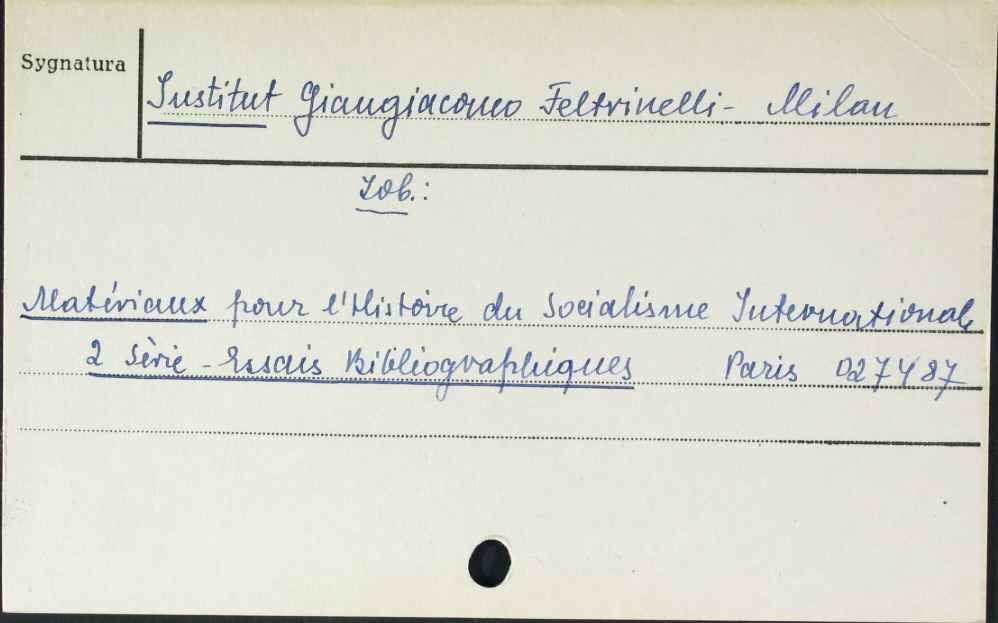 Sygnatura
Institut Giangiacomo Feltrinelli - Milan
Zob.:
Matériaux pour l'Histoire du Socialisme Internationale
2 Série - Essais Bibliographiques Paris D27487